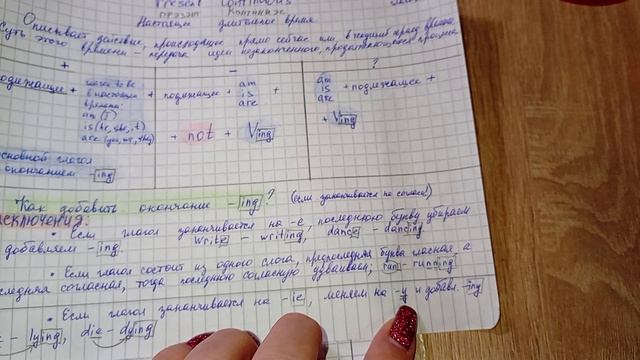 Present Continuous
презэт Континиэс
Настоящее длительное время
Описывает действие, происходящее прямо сейчас или в текущий период времени.
Суть этого времени - передача идеи незаконченного, продолжающегося процесса
+ - ?
одлежащее + глагол to be в настоящем времени: am (I) is (he, she, it) are (you, we, they)
основной глагол
окончанием -ing
+ подлежащее + am is are +
+ not + Ving
am is are + подлежащее +
+ Ving
Как добавить окончание -ing? (если заканчивается на согласн!)
исключения:
• Если глагол заканчивается на -e, последнюю букву убираем
добавляем -ing write - writing, dance - dancing.
• Если глагол состоит из одного слога, предпоследняя буква гласная а
следняя согласная, тогда последнюю согласную удваиваем, run - running
• Если глагол заканчивается на -ie, меняем на -y и добавл. -ing
- lying, die - dying